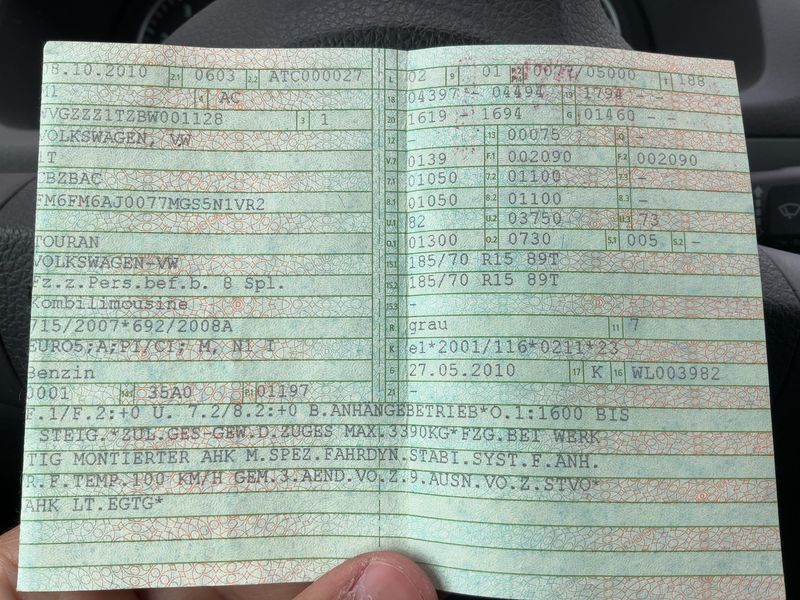 8.10.2010 2.1 0603 2.2 ATC000027 L 02 9 01 05000 T 188
M1 4 AC 18 04397 - 04494 19 1794 -
WVGZZZ1TZBW001128 3 1 20 1619 - 1694 G 01460 - -
VOLKSWAGEN, VW 12 - 13 00075 Q -
1T V.7 0139 F.1 002090 F.2 002090
CBZBAC 7.1 01050 7.2 01100 7.3 -
FM6FM6AJ0077MGS5N1VR2 8.1 01050 8.2 01100 8.3 -
U.1 82 U.2 03750 U.3 73
TOURAN O.1 01300 O.2 0730 S.1 005 S.2 -
VOLKSWAGEN-VW 15.1 185/70 R15 89T
Fz.z.Pers.bef.b. 8 Spl. 15.2 185/70 R15 89T
Kombilimousine 15.3 -
715/2007*692/2008A R grau 11 7
EURO5;A;PI/CI; M, N1 I K e1*2001/116*0211*23
Benzin 6 27.05.2010 17 K 16 WL003982
0001 14.1 35A0 P.1 01197 21 -
F.1/F.2:+0 U. 7.2/8.2:+0 B.ANHÄNGEBETRIEB*O.1:1600 BIS
STEIG.*ZUL.GES-GEW.D.ZUGES MAX.3390KG*FZG.BEI WERK
TIG MONTIERTER AHK M.SPEZ.FAHRDYN.STABI.SYST.F.ANH.
R.F.TEMP.100 KM/H GEM.3.AEND.VO.Z.9.AUSN.VO.Z.STVO*
AHK LT.EGTG*